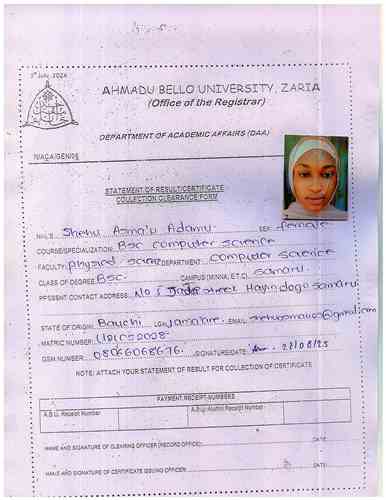 3rd July, 2024
AHMADU BELLO UNIVERSITY, ZARIA
(Office of the Registrar)
DEPARTMENT OF ACADEMIC AFFAIRS (DAA)
STATEMENT OF RESULT/CERTIFICATE
COLLECTION CLEARANCE FORM
Shehu Asma'u Adamu SEX: female
COURSE/SPECIALIZATION: Bsc computer science
FACULTY: physical DEPARTMENT: computer science
CLASS OF DEGREE: Bsc. CAMPUS (MINNA, ETC). Samaru
PRESENT CONTACT ADDRESS: No 5 street Hayindogo Samaru
STATE OF ORIGIN: Bauchi LGA: Jama'are EMAIL:
MATRIC NUMBER:
GSM NUMBER: 08066068676 SIGNATURE/DATE: 27/08/25
NOTE: ATTACH YOUR STATEMENT OF RESULT FOR COLLECTION OF CERTIFICATE
PAYMENT RECEIPT NUMBERS
A.B.U. Receipt Number A.B.U Alumni Receipt Number
NAME AND SIGNATURE OF CLEARING OFFICER (RECORD OFFICE): DATE:
NAME AND SIGNATURE OF CERTIFICATE ISSUING OFFICER: DATE: